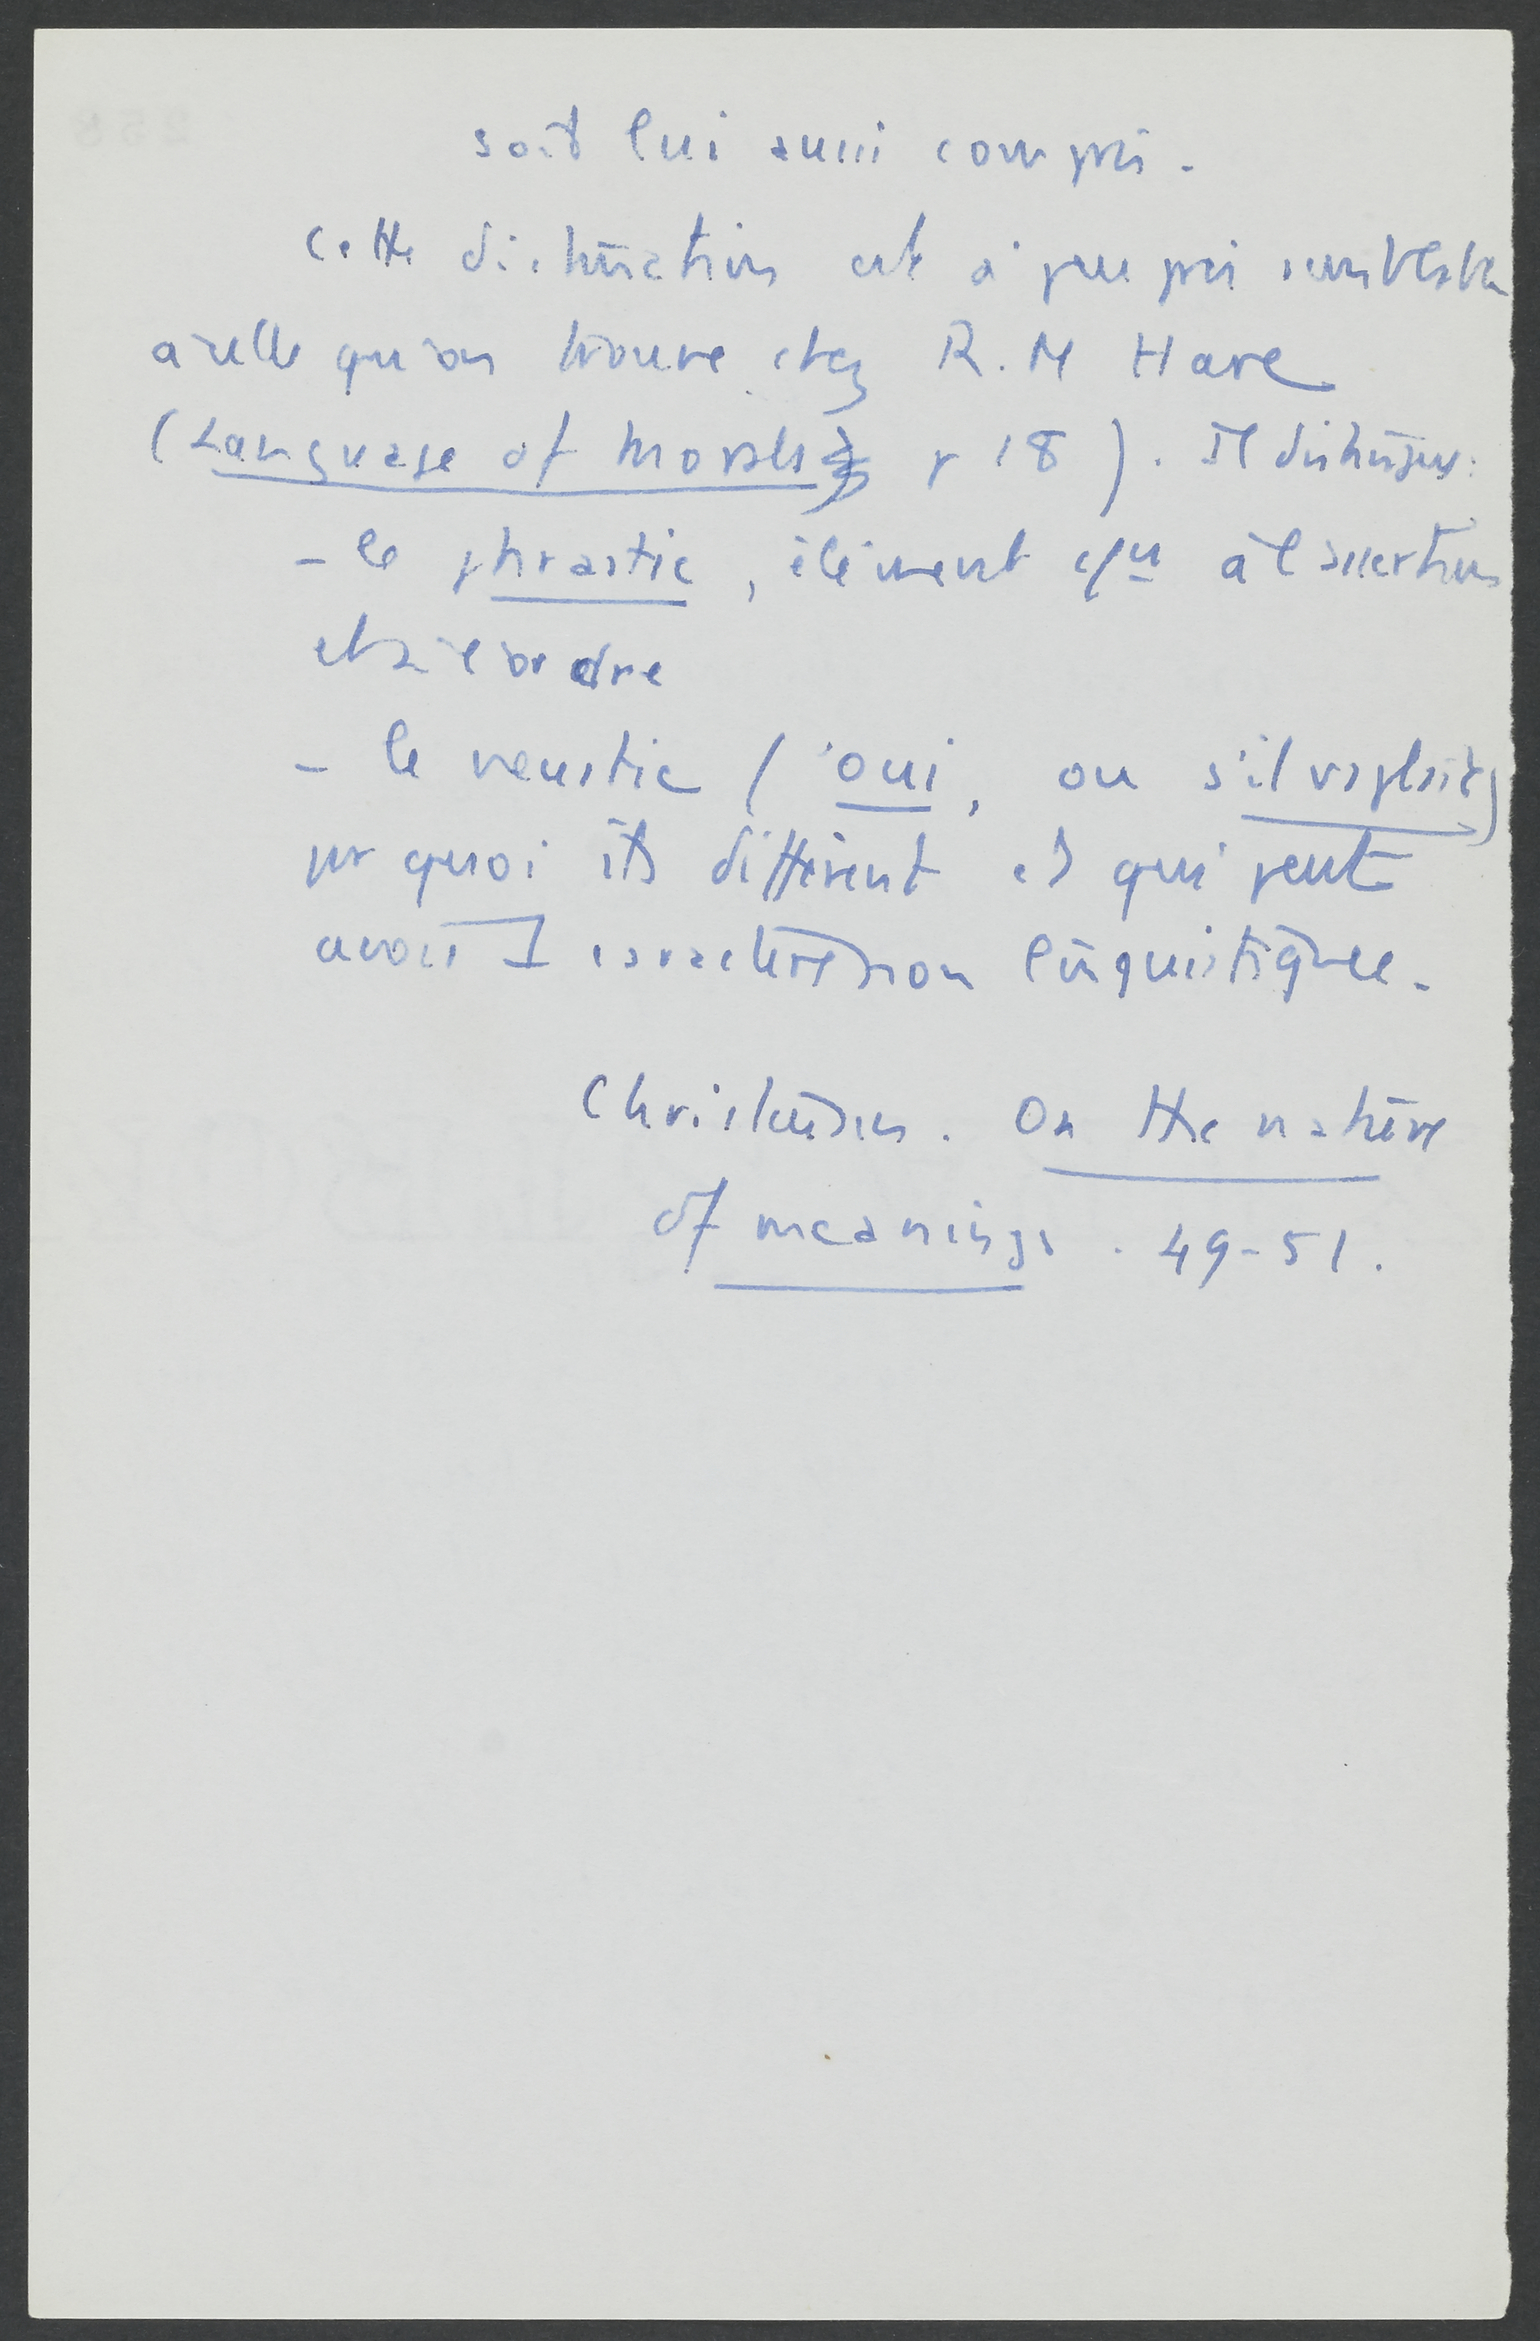 soit lui aussi compris.
Cette distinction est à peu près semblable
à celle qu'on trouve chez R. M Hare
(Language of Morals p 18). Il distingue:
- le phrastic, élément cun à l'assertion
et à l'ordre
- le neustic (oui, ou s'il vs plait)
par quoi ils diffèrent et qui peut
avoir 1 caractère non linguistique.
Christensen. On the nature
of meanings. 49-51.